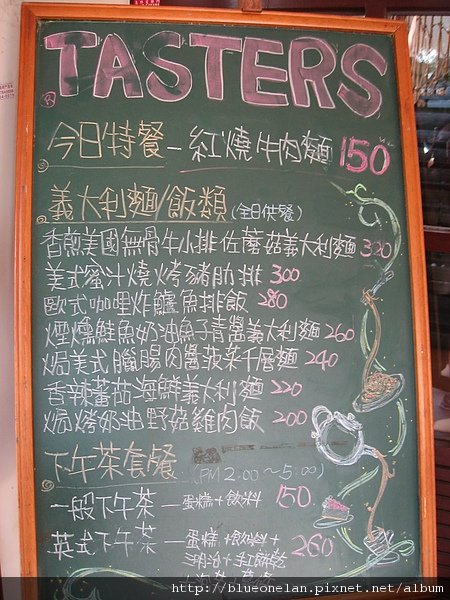 TASTERS
今日特餐 - 紅燒牛肉麵 150
義大利麵/飯類 (全日供餐)
香煎美國無骨牛小排佐蘑菇義大利麵 320
美式蜜汁燒烤豬肋排 300
歐式咖哩炸鱸魚排飯 280
煙燻鮭魚奶油魚子青醬義大利麵 260
焗美式臘腸肉醬菠菜千層麵 240
香辣蕃茄海鮮義大利麵 220
焗烤奶油野菇雞肉飯 200
下午茶套餐 (PM 2:00~5:00)
一般下午茶 - 蛋糕+飲料 150
英式下午茶 - 蛋糕+飲料+ 260
手工餅乾
http://blueonelan.pixnet.net/album